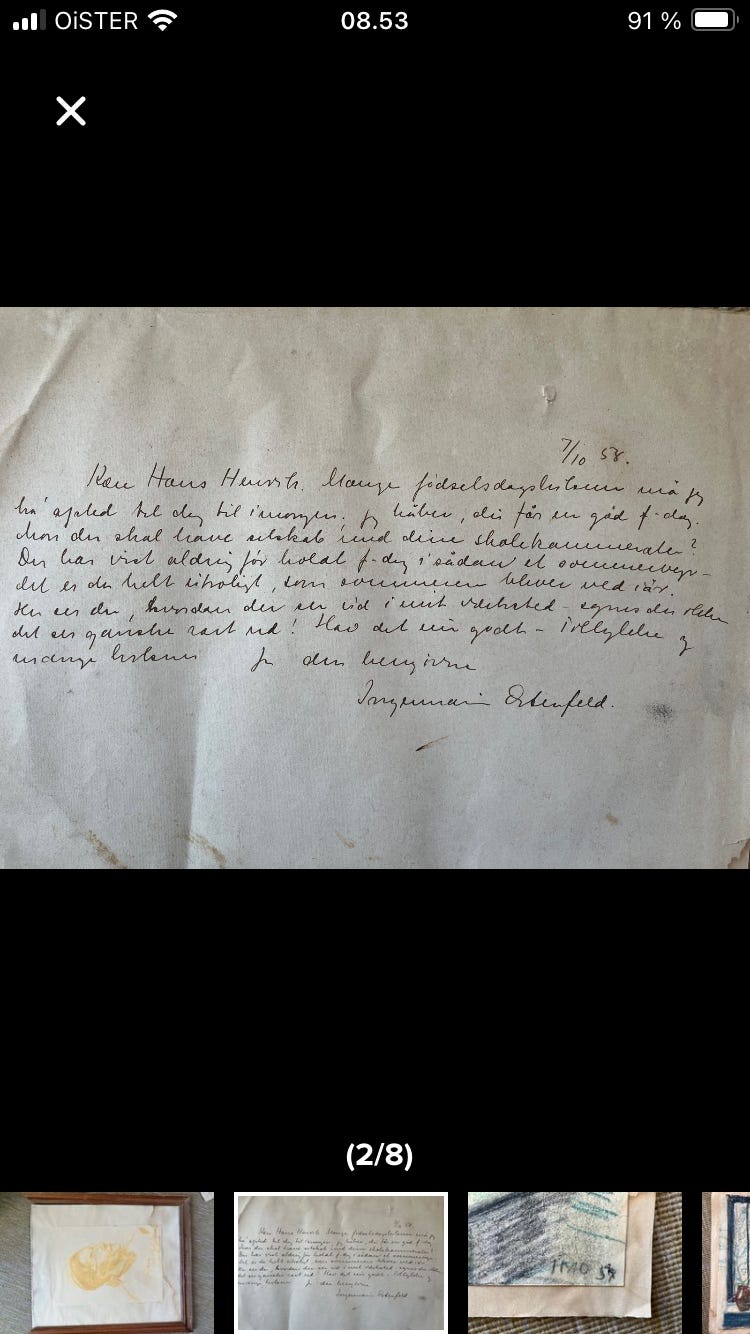 OiSTER 08.53 91 %
7/10 58.
Kære Hans Henrik. Mange fødselsdagshilsner må jg
ha' afsted til dig til imorgen. Jg håber, du får en god f-dag.
mon du skal have selskab med dine skolekammerater?
Du har vist aldrig før holdt f-dag i sådan et sommervejr -
det er da helt utroligt, som sommeren bliver ved iår.
Her ser du, hvordan der ser ud i mit værksted - synes du ikke
det ser ganske rart ud! Hav det nu godt - Tillykke og
mange hilsner Fra din hengivne
Ingermarie Ostenfeld.
(2/8)
IMO 58